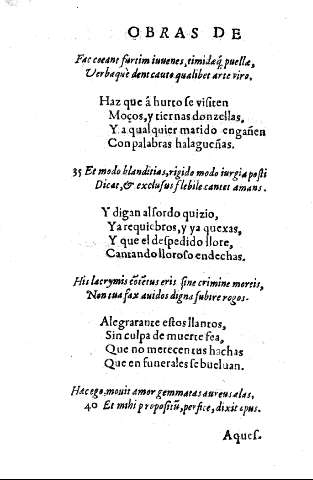 OBRAS DE
Fac coeant furtim iuuenes, timidæq; puellæ,
Verbaque dent cauto qualibet arte viro.
Haz que á hurto se visiten
Moços, y tiernas donzellas,
Y a qualquier marido engañen
Con palabras halagueñas.
35 Et modo blanditias, rigido modo iurgia posti
Dicat, & exclusus flebile cantet amans.
Y digan al sordo quizio,
Ya requiebros, y ya quexas,
Y que el despedido llore,
Cantando lloroso endechas.
His lacrymis cõtẽtus eris sine crimine mortis,
Non tua fax auidos digna subire rogos.
Alegrarante estos llantos,
Sin culpa de muerte fea,
Que no merecen tus hachas
Que en funerales se bueluan.
Hæc ego, mouit amor gemmatas aureus alas,
40 Et mihi propositũ, perfice, dixit opus.
Aques.